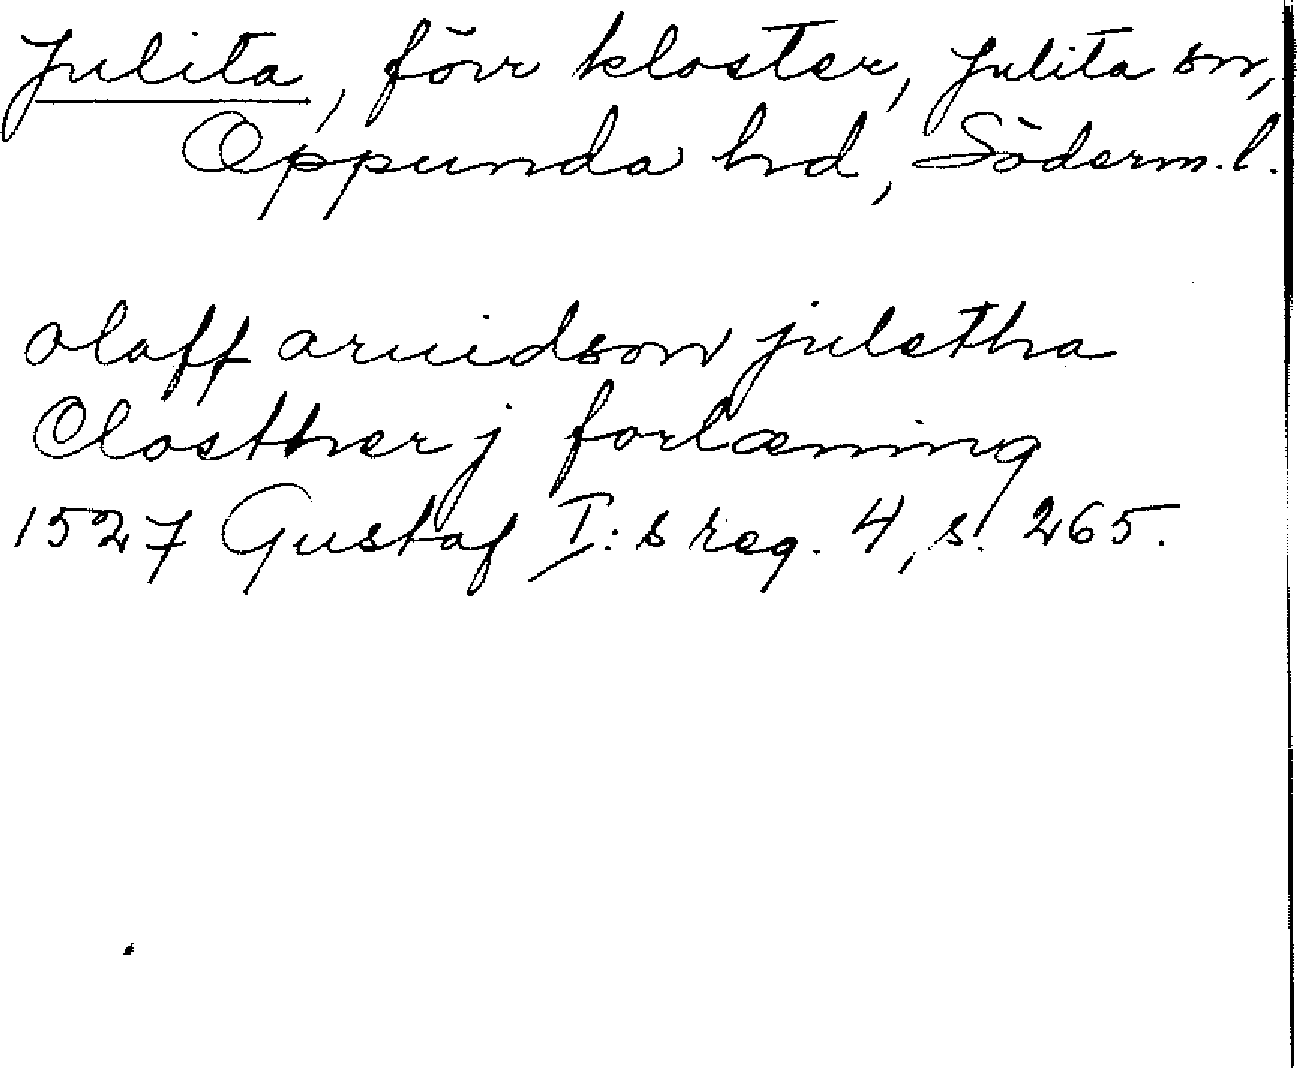 Julita, förr kloster, Julita sn,
Oppunda hd, Söderm.l.
olaff aruidson juletha
Closther j forlæning
1527 Gustaf I:s reg. 4, s. 265.